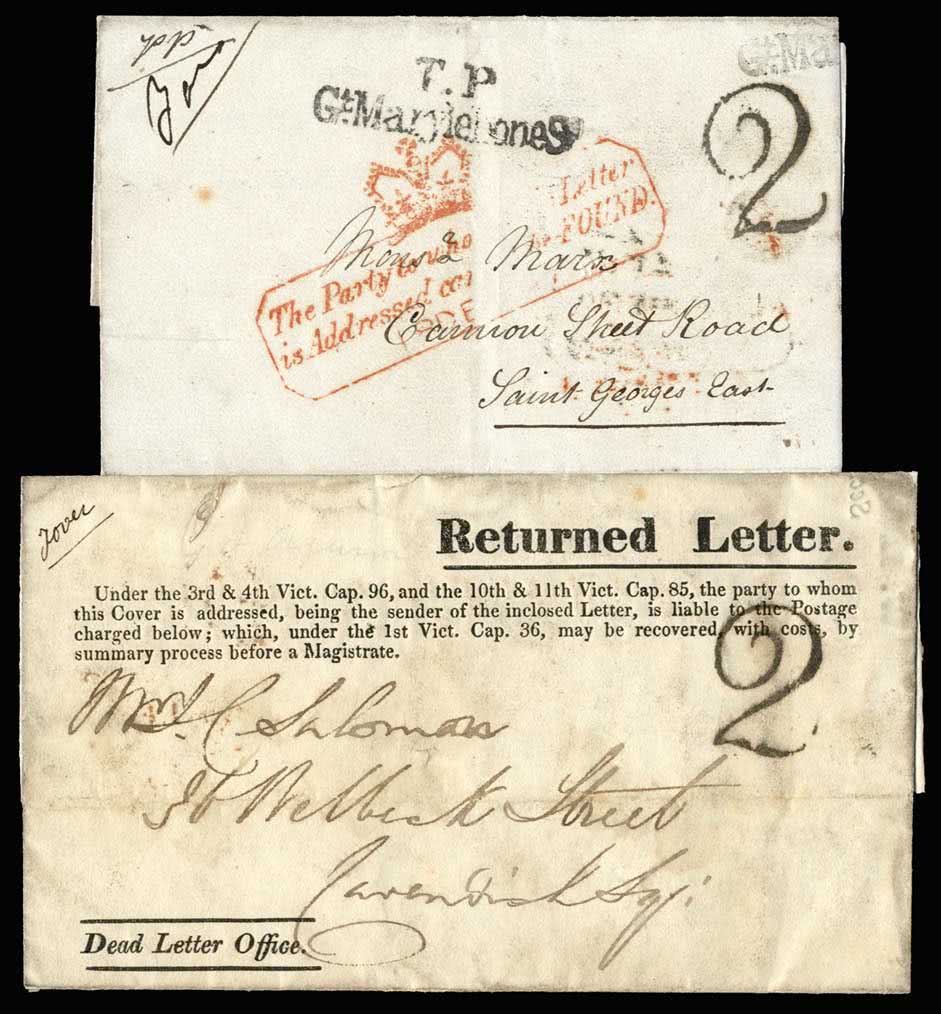 T.P
Gt Marylebone St
Gt Ma
2
The Party to who Letter
is Addressed ca FOUND.
Monsr Marx
Cannon Street Road
Saint Georges East
Returned Letter.
Under the 3rd & 4th Vict. Cap. 96, and the 10th & 11th Vict. Cap. 85, the party to whom
this Cover is addressed, being the sender of the inclosed Letter, is liable to the Postage
charged below; which, under the 1st Vict. Cap. 36, may be recovered, with costs, by
summary process before a Magistrate.
2
Mrs. C Salomon
36 Welbeck Street
Cavendish Sqr.
Dead Letter Office.